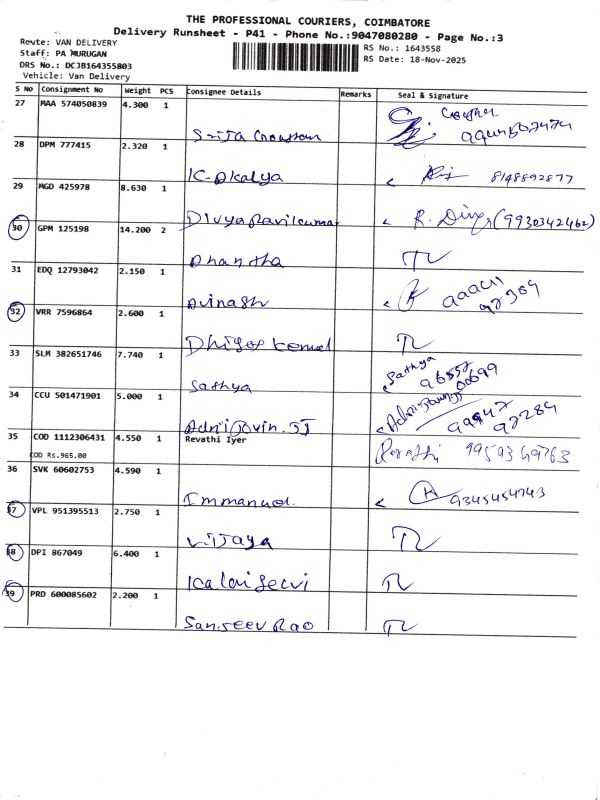 THE PROFESSIONAL COURIERS, COIMBATORE
Delivery Runsheet - P41 - Phone No.:9047080280 - Page No.:3
Route: VAN DELIVERY
Staff: PA MURUGAN
DRS No.: DCJB164355803
Vehicle: Van Delivery
RS No.: 1643558
RS Date: 18-Nov-2025
S No Consignment No Weight PCS Consignee Details Remarks Seal & Signature
27 MAA 574050839 4.300 1
28 DPM 777415 2.320 1
K-Dkalya 8148892877
29 MGD 425978 8.630 1
Divyaravikumar R. Divya (9930342462)
30 GPM 125198 14.200 2
Dhantha TL
31 EDQ 12793042 2.150 1
Avinash
32 VRR 7596864 2.600 1
TL
33 SLM 382651746 7.740 1
Sathya Sathya 96552 00699
34 CCU 501471901 5.000 1
99947 97284
35 COD 1112306431 4.550 1 Revathi Iyer
COD Rs.965.00 Revathi 9959349763
36 SVK 60602753 4.590 1
Immanuel 9345454743
37 VPL 951395513 2.750 1
Vijaya TL
38 DPI 867049 6.400 1
Kalaiselvi TL
39 PRD 600085602 2.200 1
Sanjeev Rao TL